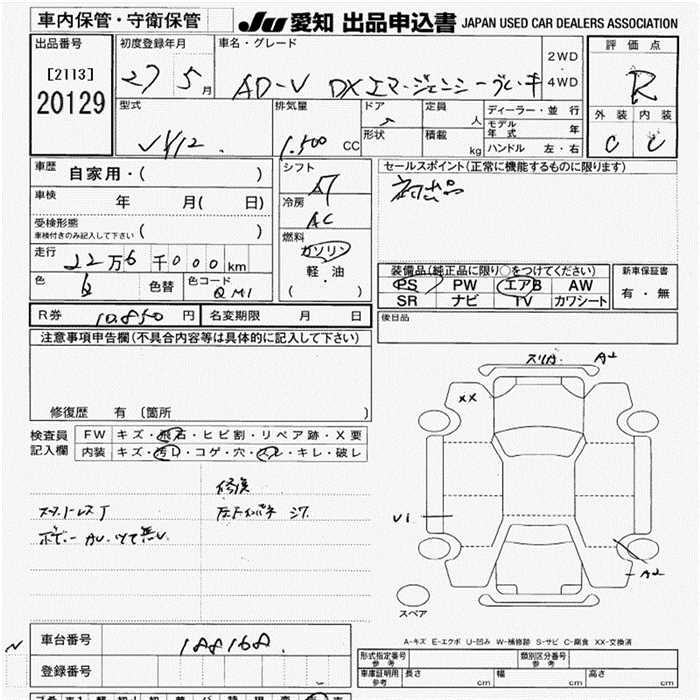 車内保管・守衛保管
JU 愛知 出品申込書 JAPAN USED CAR DEALERS ASSOCIATION
出品番号
[2113]
20129
初度登録年月
27 5月
車名・グレード
AD-V DX エマージェンシーブレーキ
2WD
・
4WD
評価点
R
外装 内装
C C
型式
VY12
排気量
1,500 CC
ドア
5
定員
人
形状
積載
kg
ディーラー・並行
モデル年式 年
ハンドル 左・右
車歴 自家用・( )
車検 年 月( 日)
受検形態
車検付きのみ記入して下さい ( )
走行 22万6千000km
色 色替 色コード QM1
シフト
AT
冷房
AC
燃料
ガソリン
軽・油
( )
セールスポイント(正常に機能するものに限ります)
初出品
装備品(純正品に限り○をつけてください)
PS PW エアB AW
SR ナビ TV カワシート
新車保証書
有・無
R券 10,850円 名変期限 月 日
後日品
注意事項申告欄(不具合内容等は具体的に記入して下さい)
修復歴 有 (箇所 )
検査員
記入欄
FW キズ・飛石・ヒビ割・リペア跡・X要
内装 キズ・汚レ・コゲ・穴・スレ・キレ・破レ
修復
A2
XX
V1
A2
スペア
A-キズ E-エクボ U-凹み W-補修跡 S-サビ C-腐食 XX-交換済
車台番号 188168
登録番号
形式指定番号 参考
類別区分番号 参考
車庫証明用 参考 長さ cm 幅 cm 高さ cm